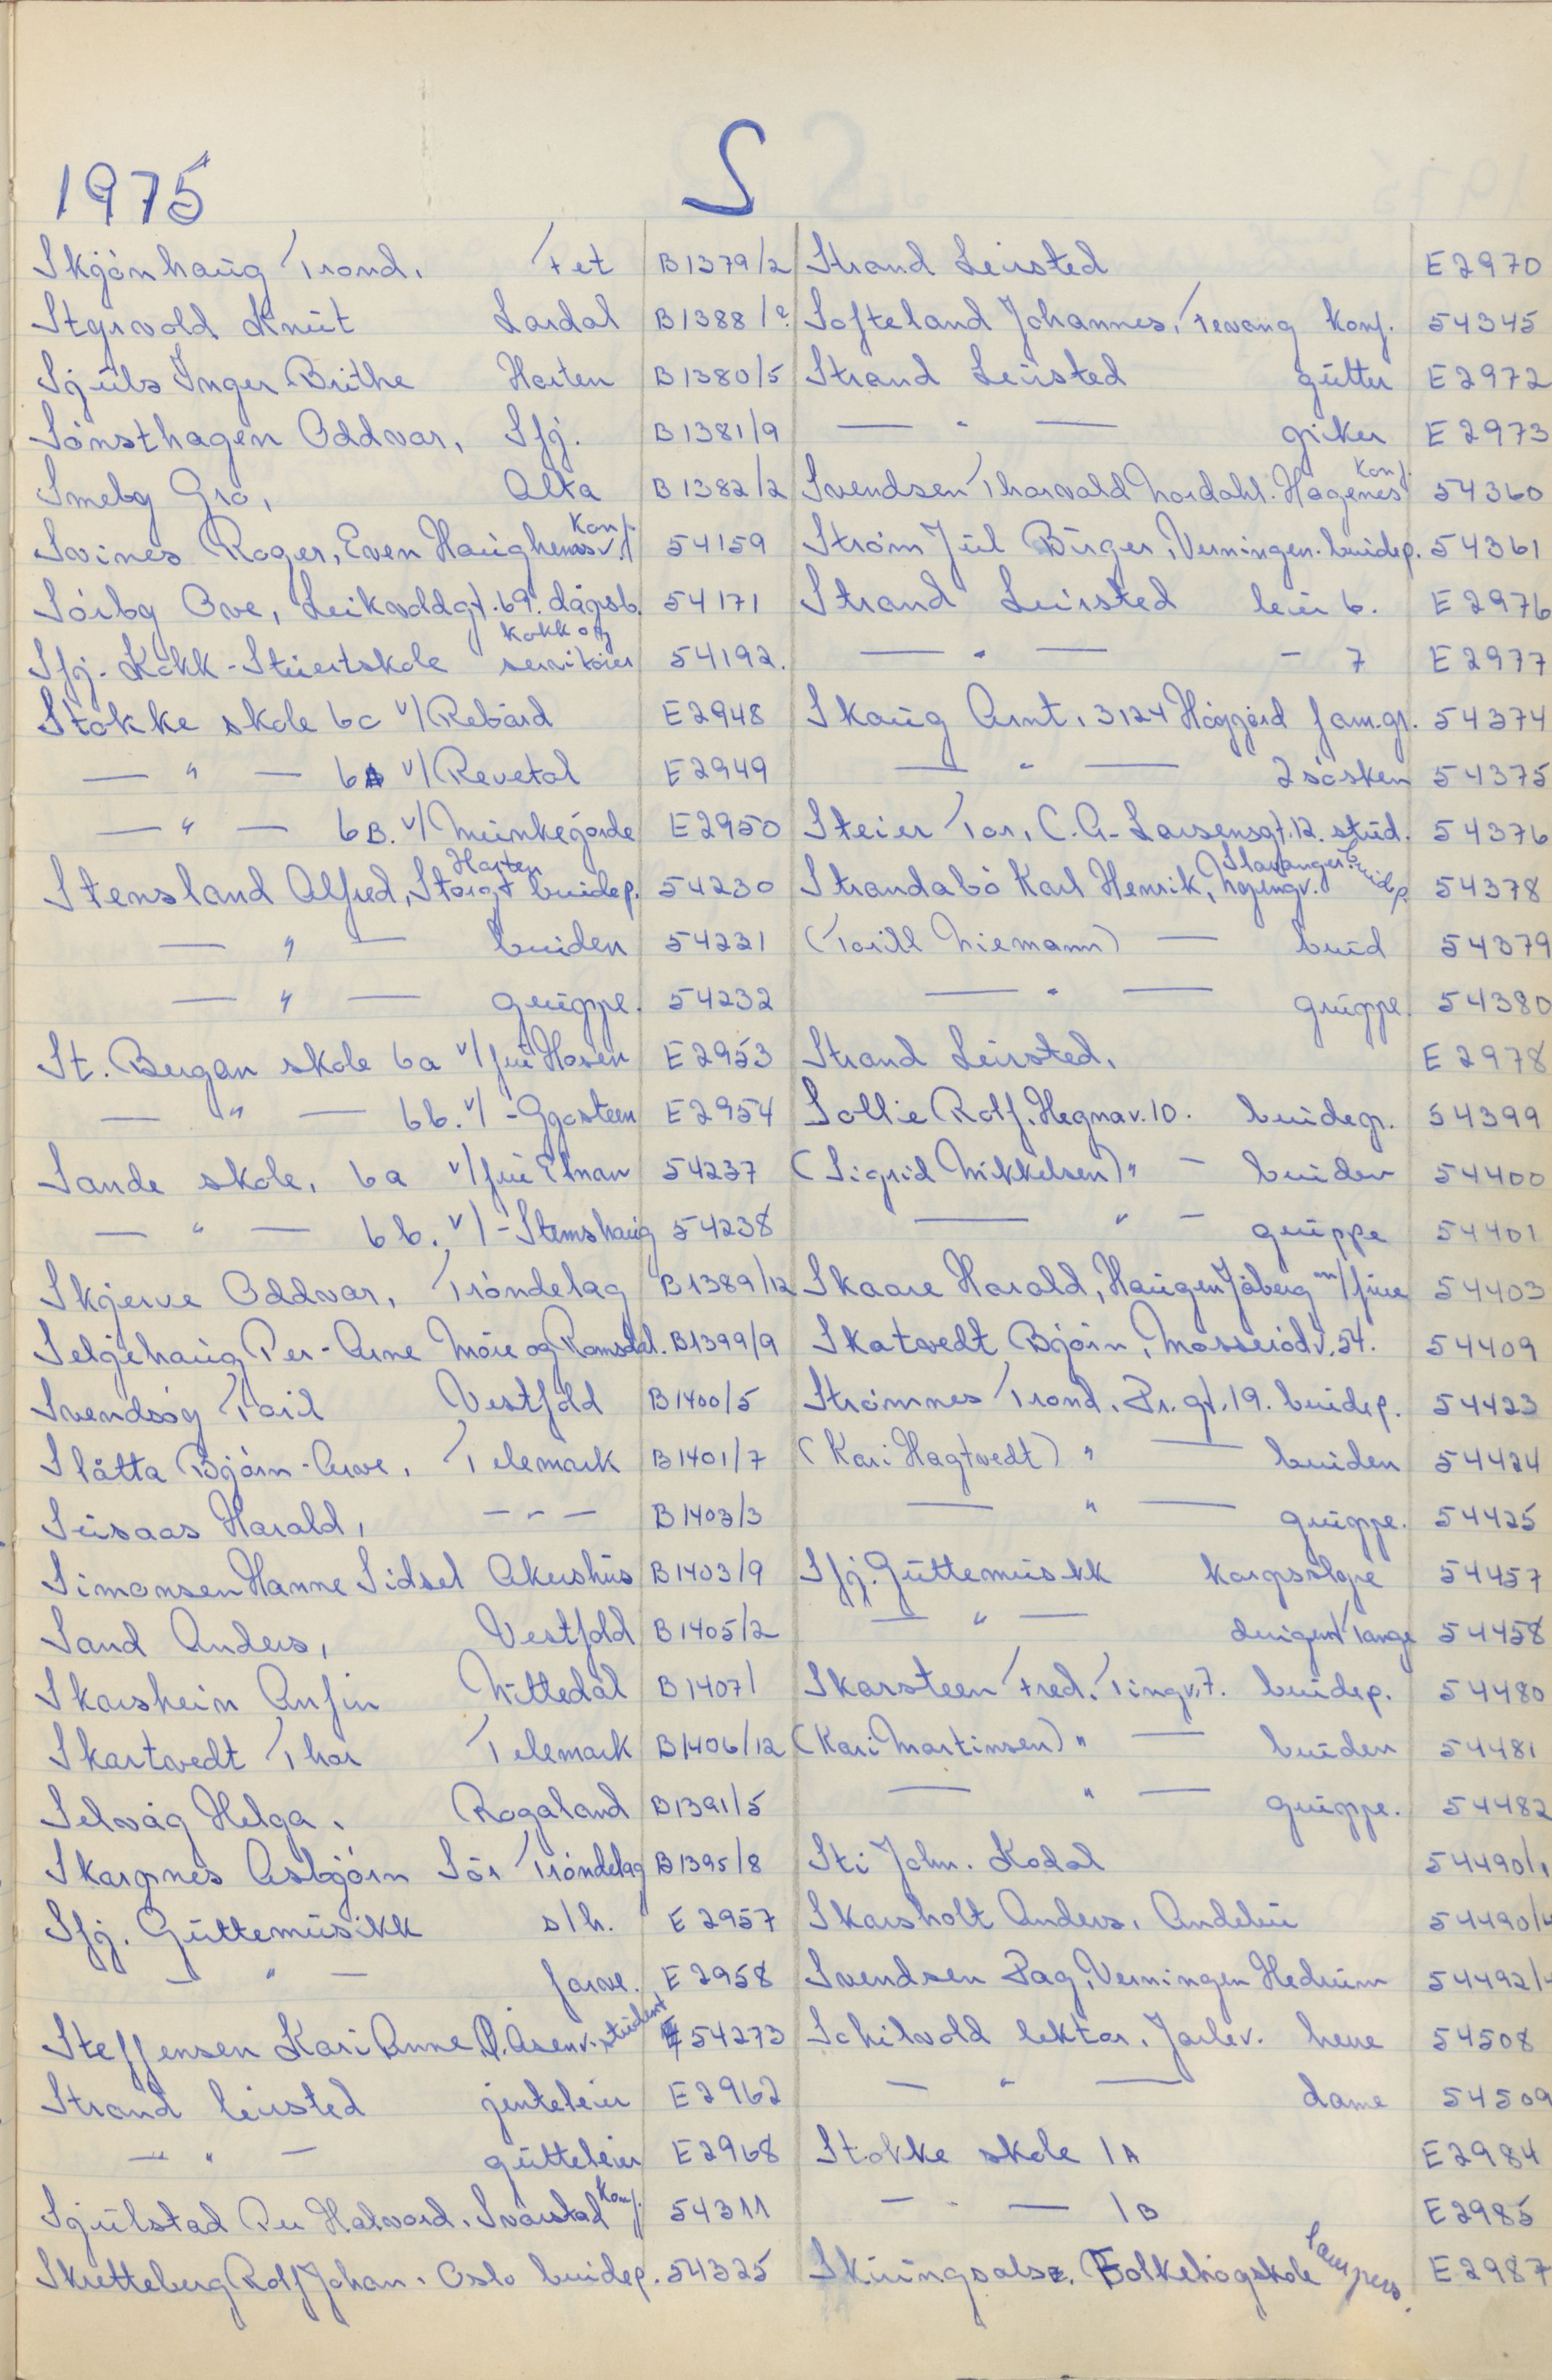 S
1975
Skjønhaug Trond. Fet B1379/2
Styrvold Knut Lardal B1388/2
Sjuls Inger Brithe Horten B1380/5
Sønsthagen Oddvar, Sfj. B1381/9
Smeby Gro, Alta B1382/2
Svines Roger, Even Haughemsv. Konf. 54159
Sørby Ove, 69. dågsb. 54171
Sfj. Kokk-Stuertskole kokk og servitører 54192.
Stokke skole 6c v/ Rebård E2948
— " — 6A v/ Revetal E2949
— " — 6B. v/ E2950
Stensland Alfred, Storgt Horten brudep. 54230
— " — bruden 54231
— " — gruppe. 54232
St. Bergan skole 6a v/ fru Hosen E2953
— " — 6b. v/ - Gjøsteen E2954
Sande skole, 6a v/ fru 54237
— " — 6b. v/ - Stemshaug 54238
Skjerve Oddvar, Trøndelag B1389/12
Seljehaug Per-Arne Møre og Romsdal. B1399/9
Svendsøy Toril Vestfold B1400/5
Slåtta Bjørn-Arve, Telemark B1401/7
Susaas Harald, - " - B1403/3
Simonsen Hanne Sidsel Akershus B1403/9
Sand Anders, Vestfold B1405/2
Skarshein Anfin Nittedal B1407/1
Skartvedt Thor Telemark B1406/12
Selvåg Helga. Rogaland B1391/5
Skarpnes Asbjørn Sør Trøndelag B1395/8
Sfj. Guttemusikk s/h. E2957
— " — farve. E2958
Steffensen Kari Anne, Ø. Åsenv. student 54273
Strand leirsted jenteleir E2962
— " — gutteleir E2968
Sjulstad Per Halvard. Svarstad Konf. 54311
Skretteberg Rolf Johan. Oslo brudep. 54325
Strand Leirsted E2970
Softeland Johannes, Tenvang konf. 54345
Strand Leirsted gutter E2972
— " — piker E2973
Svendsen Thorvald Nordahl. Hagenes Konf. 54360
Strøm Jul Birger, Verningen. brudep. 54361
Strand Leirsted leir 6. E2976
— " — - 7 E2977
Skaug Arnt, 3124 Høgjord fam.gr. 54374
— " — 2 søsken 54375
Steier Tor, C.A-Larsensgt.12. stud. 54376
Strandabø Karl Henrik, Stavanger brudep 54378
(Torill Niemann) — brud 54379
— " — gruppe. 54380
Strand Leirsted, E2978
Sollie Rolf. Hegnav. 10. brudep. 54399
(Sigrid Mikkelsen) " - bruden 54400
— " - gruppe 54401
Skaare Harald, Haugen Jåberg m/frue 54403
Skatvedt Bjørn, Mosserødv. 54. 54409
Strømnes Trond. Pr. gt. 19. brudep. 54423
(Kari Hagtvedt) " — bruden 54424
— " — gruppe. 54425
Sfj. Guttemusikk korpssløpe 54457
— " — dirigent Tange 54458
Skarsteen Fred. Tingv. 7. brudep. 54480
(Kari Martinsen) " — bruden 54481
— " — gruppe. 54482
Sti John. Kodal 54490/1
Skarsholt Anders. Andebu 54490/4
Svendsen Dag, Verningen Hedrum 54492/4
Schilvold lektor. Jarlev. herre 54508
— " — dame 54509
Stokke skole 1A E2984
— " — 1B E2985
Skiringsals. Folkehøgskole E2987